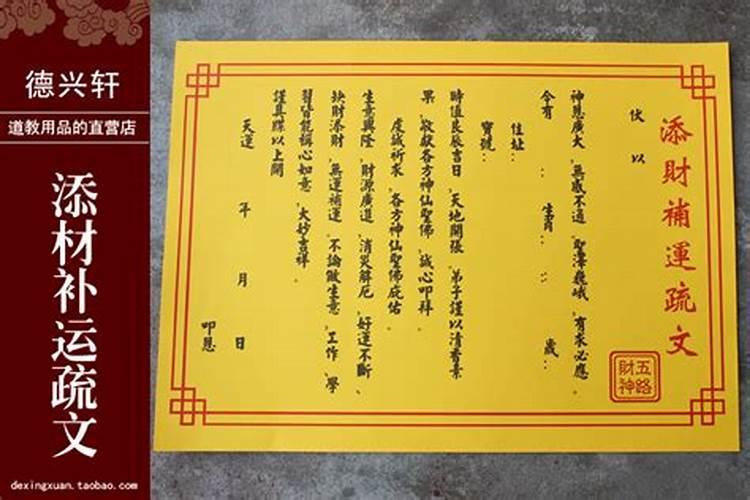 德兴轩
道教用品的直营店
添材补运疏文
dexingxuan.taobao.com
添財補運疏文
五路
財神
伏以
神恩廣大、無感不通、聖澤巍峨、有求必應。
今有：生肖：：歲、
住址：
寶號：
時值良辰吉日、天地開張、弟子謹以清香素
果、敬獻各方神仙聖佛、誠心叩拜。
虔誠祈求、各方神仙聖佛庇佑。
生意興隆、財源廣進、消災解厄、好運不斷、
缺財添財、無運補運、不論做生意、工作、學
習皆能稱心如意、大妙吉祥。
謹具牒以上聞
天運 年 月 日
叩恩